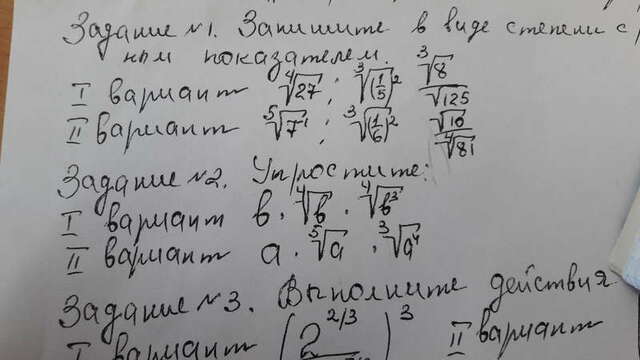 Задание №1. Запишите в виде степени с
ным показателем.
I вариант ⁴√27; ³√(1/5)²; ³√8/√125
II вариант ⁵√7; ³√(1/6)²; √10/⁴√81
Задание №2. Упростите:
I вариант b · ⁴√b · ⁴√b³
II вариант a · ³√a · ³√a⁴
Задание №3. Выполните действия
I вариант 2^(2/3) 3 II вариант